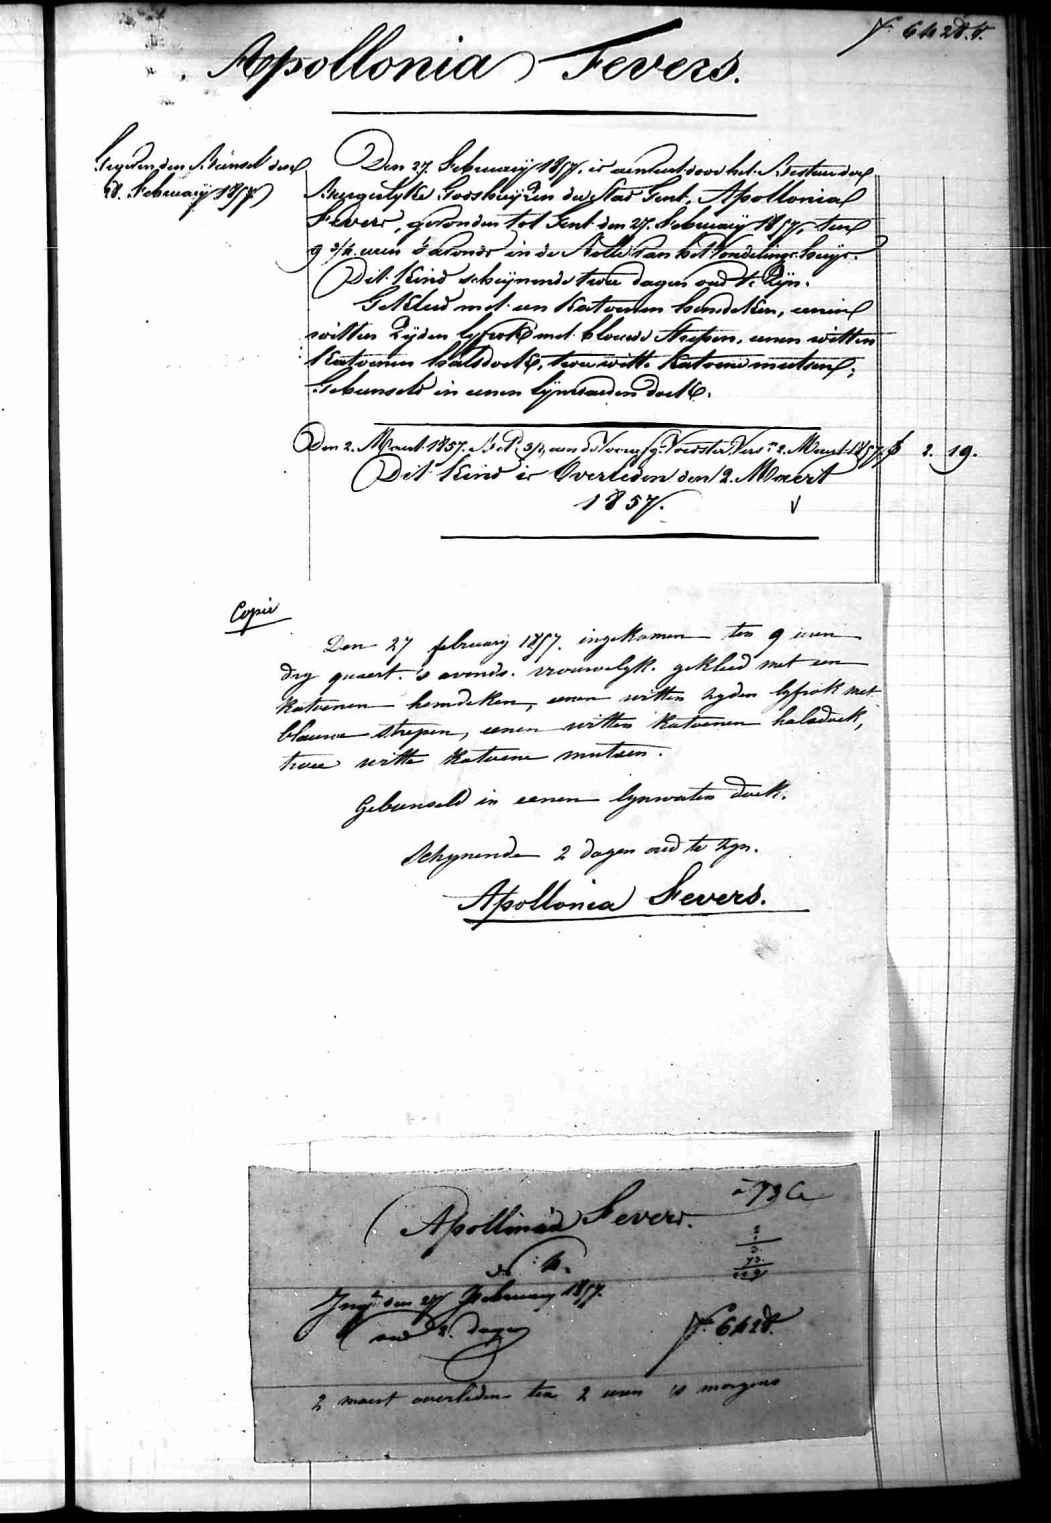 Apollonia Fevers.
Gegeven den Bunsel den
28. Februarij 1857
Den 27. Februarij 1857, is aenveert door het Bestuer der
Burgerlyke Godshuyzen der Stad Gent, Apollonia
Fevers, gevonden tot Gent den 27. Februarij 1857, ten
9 3/4 uren s'avonds in de Rolle van het Vondelings huys.
Dit Kind schynende twee dagen oud te Zyn.
Gekleed met een Katoenen hemdeken, eenen
witten Zyden lyfrok met blauwe strepen, eenen witten
Katoenen halsdoek, twee witte Katoene mutsen;
Gebunseld in eenen lynwaeden doek.
Den 2. Maert 1857. 2. Maert 1857 2. 19.
Dit Kind is Overleden den 2. Maert
1857.
Copie
Den 27 february 1857. ingekomen ten 9 uren
dry quaert. 's avonds. vrouwelyk. gekleed met een
katoenen hemdeken, eenen witten zyden lyfrok met
blauwe strepen, eenen witten katoenen halsdoek,
twee witte katoene mutsen.
Gebunseld in eenen lynwaten doek.
Schynende 2 dagen oud te zyn.
Apollonia Fevers.
Apollonia Fevers.
den 27 February 1857.
oud 2. dagen
6428.
2 maert overleden ten 2 uren 's morgens